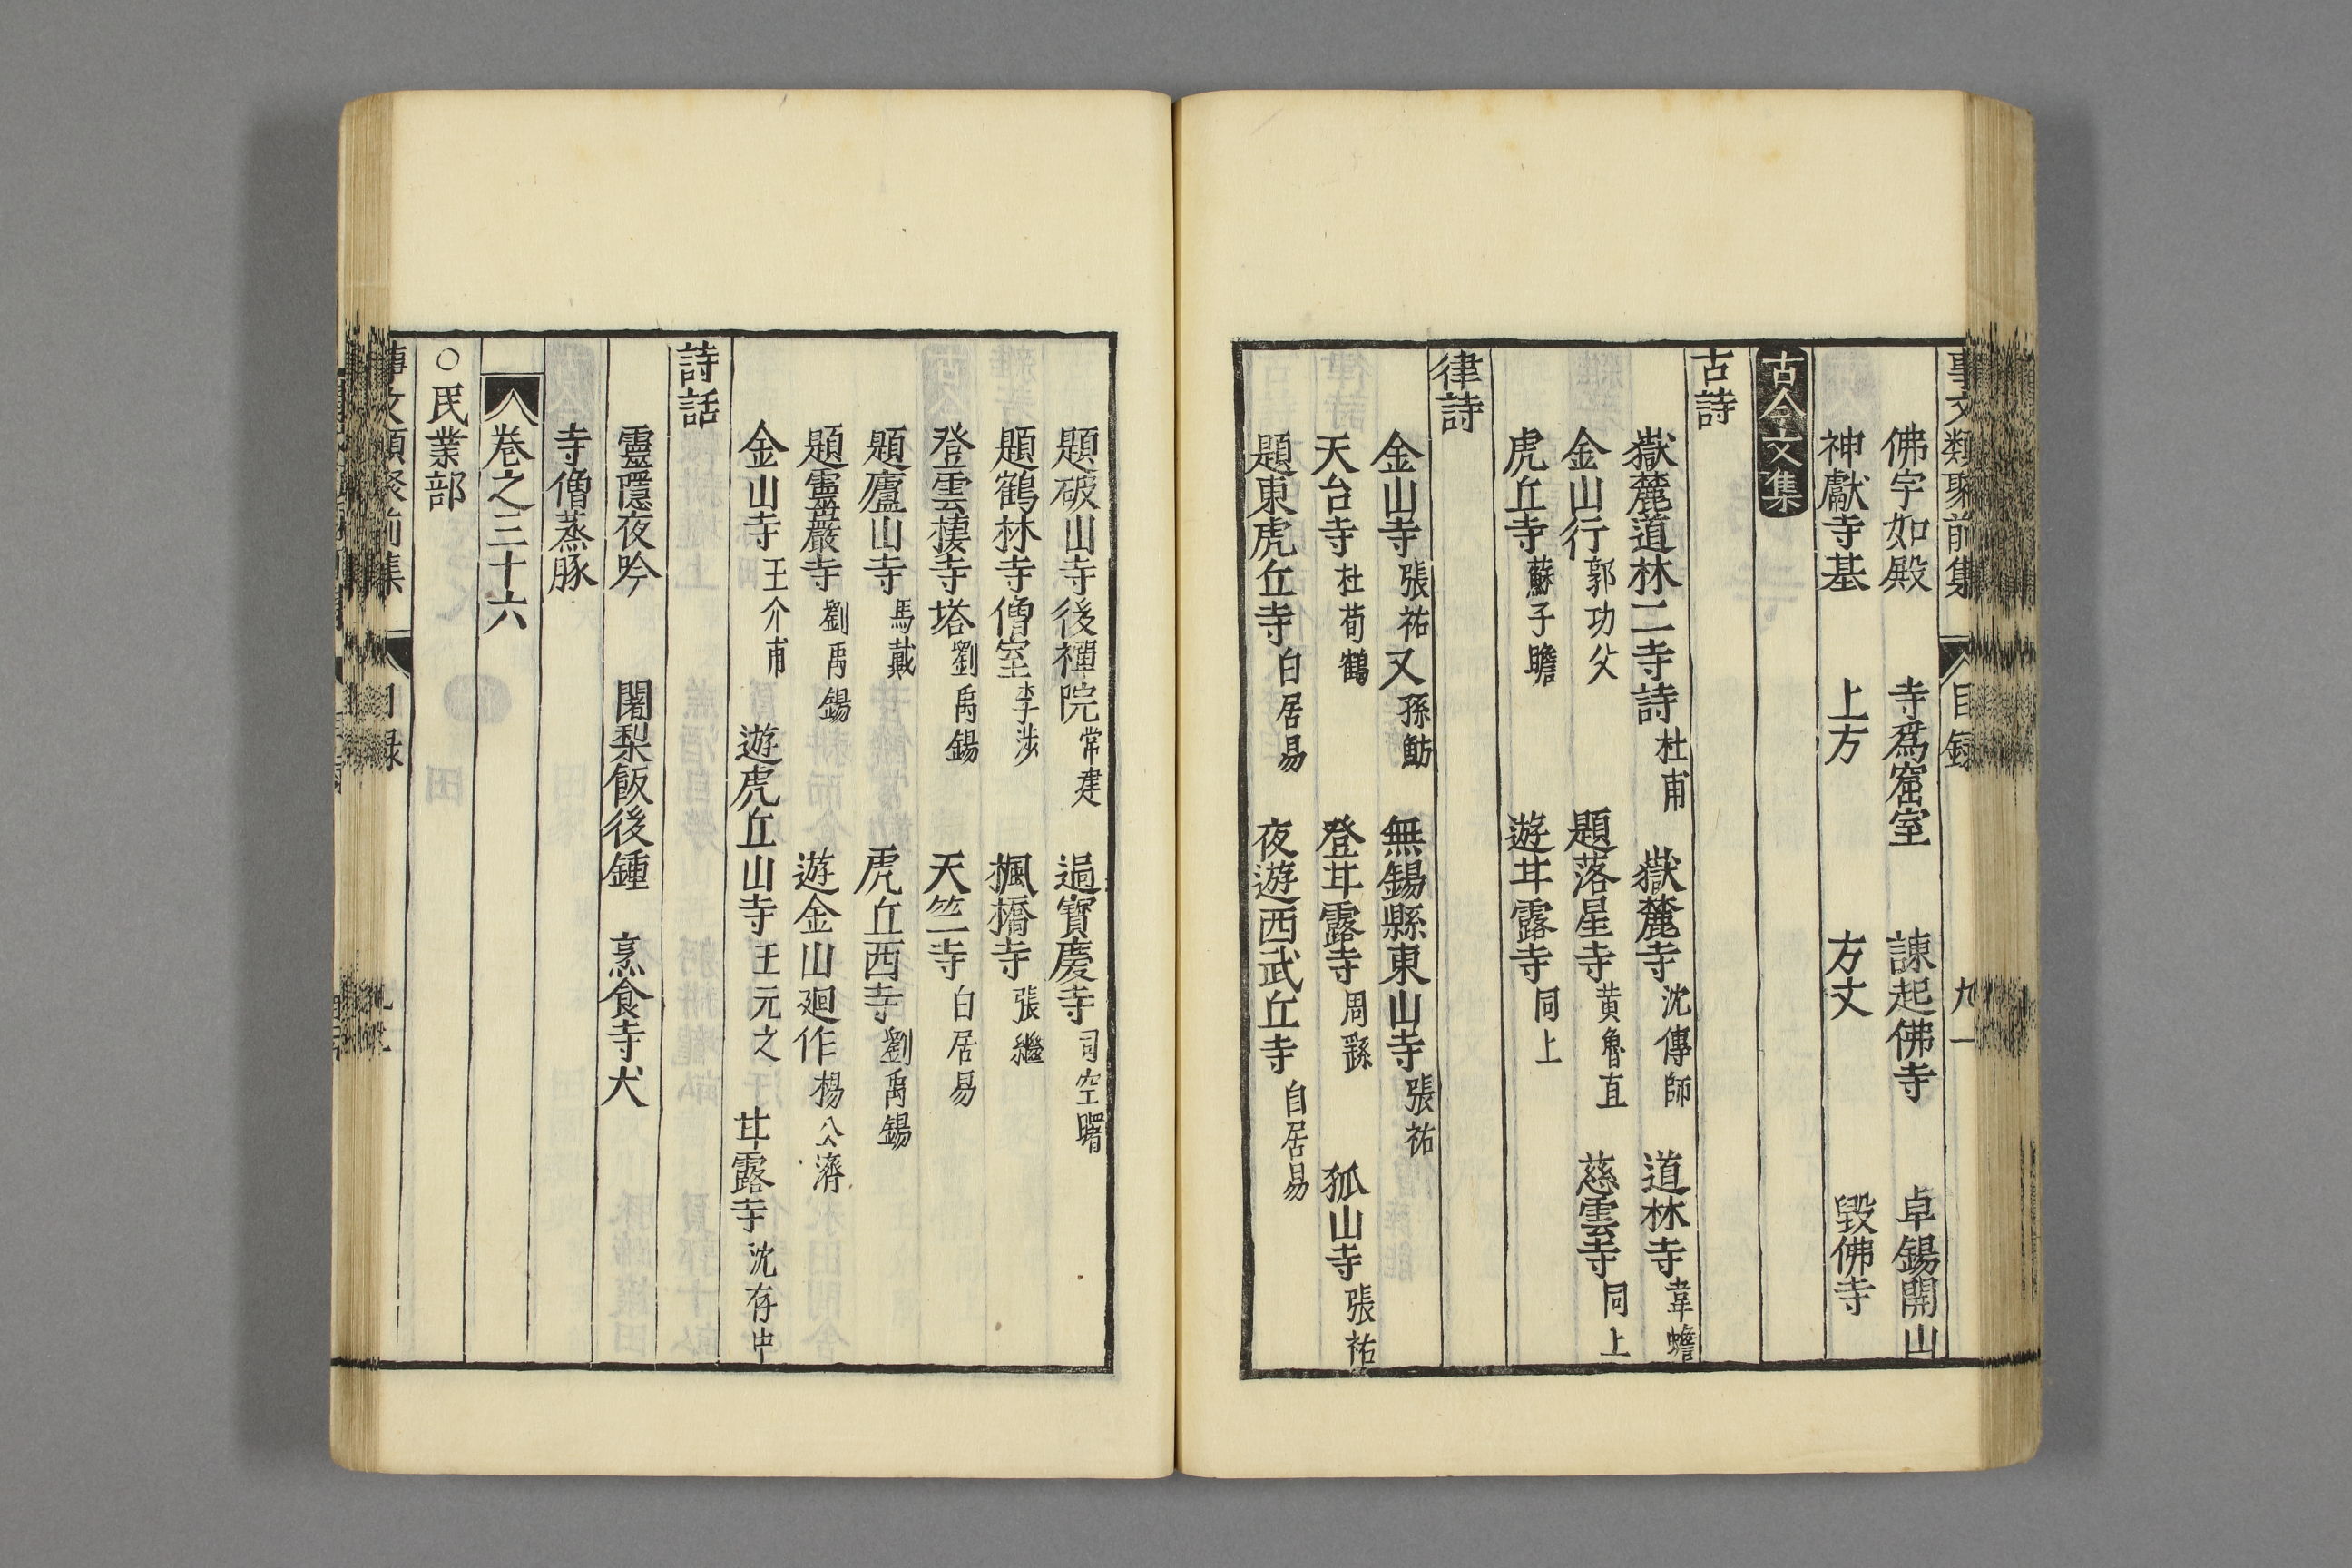 事文類聚前集 目錄 九一
佛宇如殿 寺爲窟室 諫起佛寺 卓錫開山
神獻寺基 上方 方丈 毀佛寺
古今文集
古詩
嶽麓道林二寺詩 杜甫 嶽麓寺 沈傳師 道林寺 韋蟾
金山行 郭功父 題落星寺 黄魯直 慈雲寺 同上
虎丘寺 蘇子瞻 遊甘露寺 同上
律詩
金山寺 張祐 又 孫魴 無錫縣東山寺 張祐
天台寺 杜荀鶴 登甘露寺 周繇 狐山寺 張祐
題東虎丘寺 白居易 夜遊西武丘寺 自居易
題破山寺後禪院 常建 過寶慶寺 司空曙
題鶴林寺僧室 李涉 楓橋寺 張繼
登雲棲寺塔 劉禹錫 天竺寺 白居易
題廬山寺 馬戴 虎丘西寺 劉禹錫
題靈巖寺 劉禹錫 遊金山廻作 楊公濟
金山寺 王介甫 遊虎丘山寺 王元之 甘露寺 沈存中
詩話
靈隱夜吟 闍梨飯後鍾 烹食寺犬
寺僧蒸豚
卷之三十六
○民業部
事文類聚前集 目録